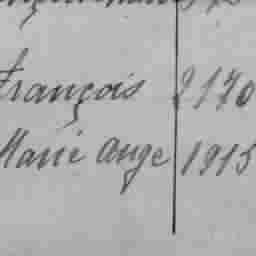 François 2170
Marie Ange 1915